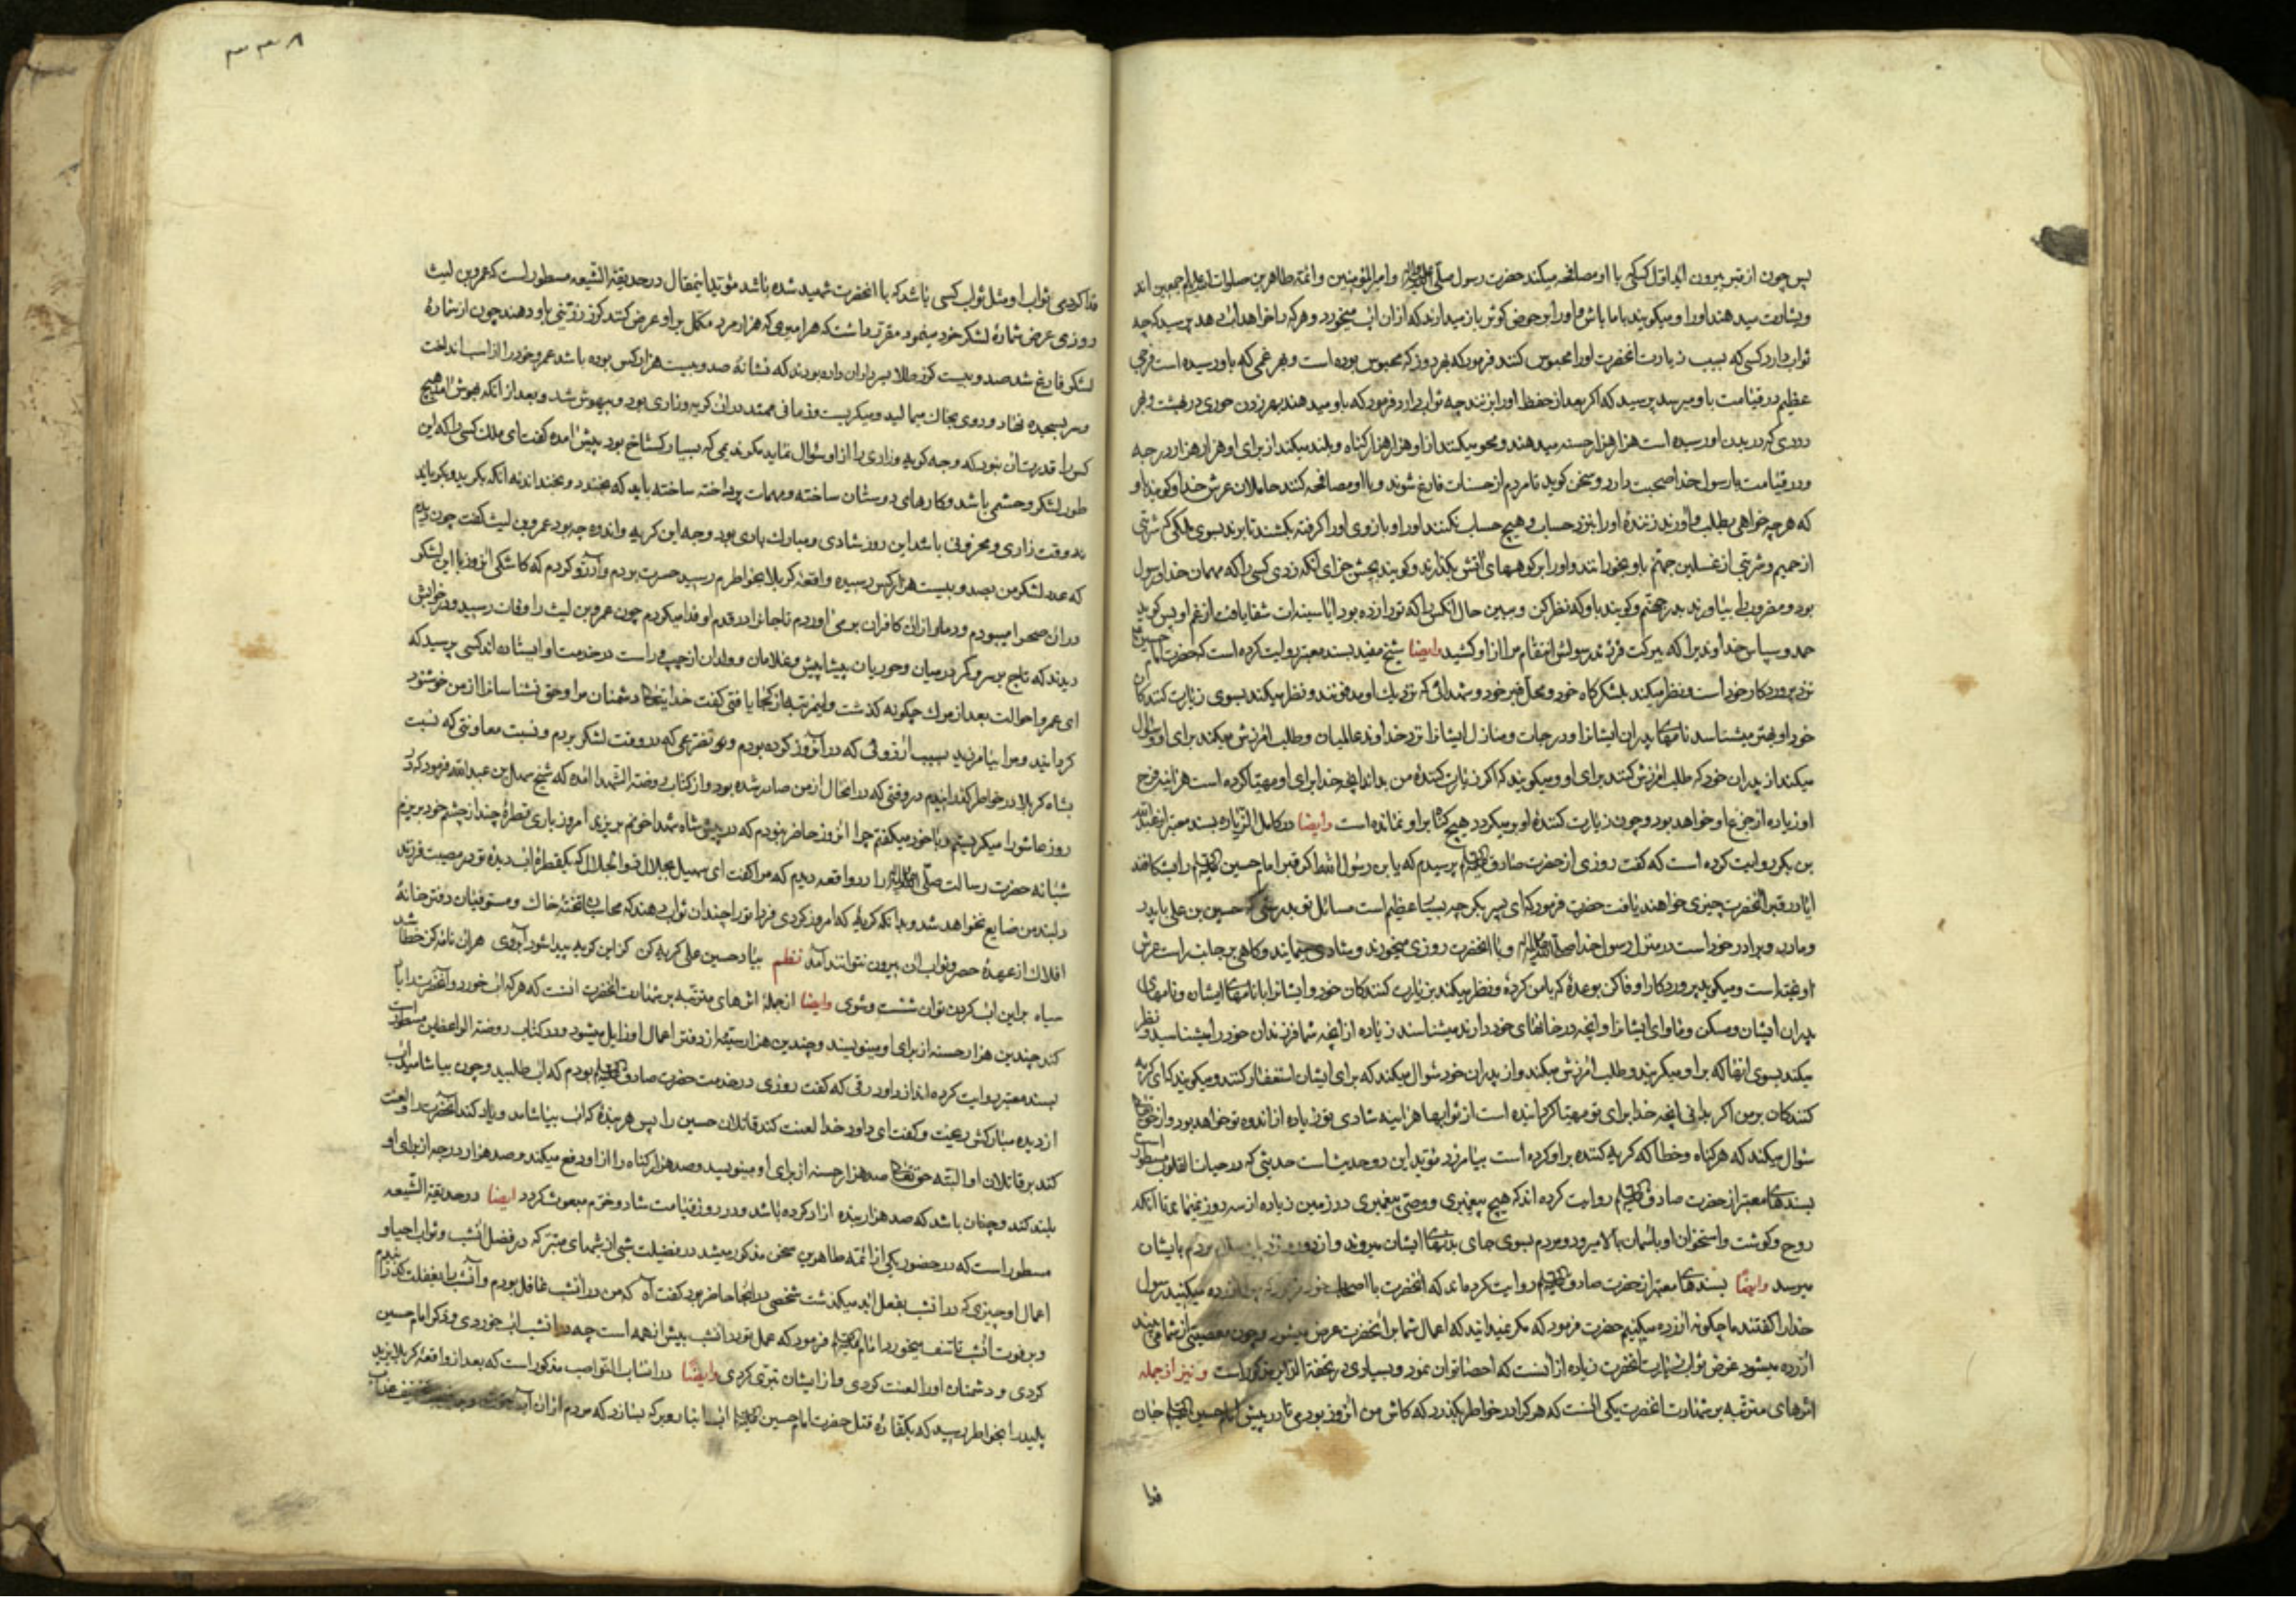 پس چون از قبر بیرون اید اول کسی که با او مصافحه میکند حضرت رسول صلی الله علیه واله و امیر المؤمنین و ائمه طاهرین صلوات الله علیهم اجمعین اند
و بشارت میدهند او را و میکویند با ما باش و او را بر حوض کوثر باز میدارند که از ان اب میخورد و هر که را خواهد اب میدهد پرسید که چه
ثواب دارد کسی که بسبب زیارت انحضرت او را محبوس کنند فرمود که بهر روز که محبوس بوده است و بهر غمی که باو رسیده است فرحی
عظیم در قیامت باو میرسد پرسید که اکر بعد از حفظ او را بزنند چه ثواب دارد فرمود که باو میدهند بهر زدن حوری در بهشت و بهر
دردی که در بدن او رسیده است هزار هزار حسنه میدهند و محو میکنند از او هزار هزار کناه و بلند میکند از برای او هزار هزار درجه
و در قیامت با رسول خدا صحبت دارد و سخن کوید تا مردم از حساب فارغ شوند و با او مصافحه کنند حاملان عرش خدا و کویند باو
که هر چه خواهی بطلب و اورند زننده او را بنزد حساب و هیچ حساب نکنند او را و بازوی او را کرفته بکشند تا برند بسوی ملکی که شربتی
از حمیم و شربتی از غسلین جهنم باو بخورانند و او را بر کوههای اتش بکذارند و کویند بچش جزای انکه زدی کسی را که مهمان خدا و رسول
بود و مضروب را بیاورند بدر جهنم و کویند باو که نظر کن و ببین حال انکس را که تو را زده بود ایا سینه ات شفا یافت از غم او پس کوید
حمد و سپاس خداوندیرا که ببرکت فرزند رسولش انتقام مرا از او کشید وایضا شیخ مفید بسند معتبر روایت کرده است که حضرت امام حسین
نزد پروردکار خود است و نظر میکند بلشکرکاه خود و محل قبر خود و شهدائی که نزدیک او مدفونند و نظر میکند بسوی زیارت کنندکان
خود او بهتر میشناسد نامهای پدران ایشانرا و درجات و منازل ایشانرا نزد خداوند عالمیان و طلب امرزش میکند برای او و سؤال
میکند از پدران خود که طلب امرزش کنند برای او و میکویند که اکر زیارت کننده من بداند انچه خدا برای او مهیا کرده است هر اینه فرح
او زیاده از جزع او خواهد بود و چون زیارت کننده او بر میکردد هیچ کناه بر او نمانده است وایضا در کامل الزیاره بسند معتبر از عبدالله
بن بکر روایت کرده است که کفت روزی از حضرت صادق پرسیدم که یا بن رسول الله اکر قبر امام حسین را بشکافند
ایا در قبر انحضرت چیزی خواهند یافت حضرت فرمود که ای پسر بکر چه بسیا عظیم است مسائل تو بدرستی که حسین بن علی با پدر
و مادر و برادر خود است در منزل رسول خدا و با انحضرت روزی میخورند و شادی مینمایند و کاهی بر جانب راست عرش
او یخته است و میکوید پروردکارا وفا کن بوعده که با من کرده و نظر میکند بزیارت کنندکان خود و ایشانرا با نامهای ایشان و نامهای
پدران ایشان و مسکن و ماوای ایشانرا و انچه در خانهای خود دارند میشناسند زیاده از انچه شما فرزندان خود را میشناسید و نظر
میکند بسوی انها که بر او میکریند و طلب امرزش میکند و از پدران خود سوال میکند که برای ایشان استغفار کنند و میکوید که ای کریه
کنندکان بر من اکر بدانی انچه خدا برای تو مهیا کردانیده است از ثوابها هر اینه شادی تو زیاده از اندوه تو خواهد بود و از حق
سؤال میکند که هر کناه و خطا که کریه کننده بر او کرده است بیامرزد مؤید این دو حدیث است حدیثی که در حیات القلوب مسطور است
بسندهای معتبر از حضرت صادق روایت کرده اند که هیچ پیغمبری و وصی پیغمبری در زمین زیاده از سه روز نمیماند تا انکه
روح و کوشت و استخوان او باسمان بالا میرود و مردم بسوی جای بدنهای ایشان میروند و از دور و نزدیک سلام مردم بایشان
میرسد وایضا بسندهای معتبر از حضرت صادق روایت کرده اند که انحضرت با اصحاب خود فرمود که ازرده میکنید رسول
خدا را کفتند ما چکونه ازرده میکنیم حضرت فرمود که مکر نمیدانید که اعمال شما بر انحضرت عرض میشود و چون معصیتی از شما می بیند
ازرده میشود غرض ثواب زیارت انحضرت زیاده از انست که احصا توان نمود و بسیاری در تحفة الزائر مذکور است و نیز از جمله
اثرهای مترتبه بر شهادت انحضرت یکی انست که هر کرا در خاطر بکذرد که کاش من انروز بودمی تا در پیش امام حسین جان
فدا
۳۳۸
فدا کردمی ثواب او مثل ثواب کسی باشد که با انحضرت شهید شده باشد مؤید اینمقال در حدیقة الشیعه مسطور است که عمرو بن لیث
روزی عرض شماره لشکر خود مینمود مقرر داشت که هر امیری که هزار مرد مکمل بر او عرض کنند کرز زرینی باو دهند چون از شماره
لشکر فارغ شد صد و بیست کرز طلا بسرداران داده بودند که نشانه صد و بیست هزار کس بوده باشد عمرو خود را از اسب انداخت
و سر بسجده نهاد و روی بخاک میمالید و میکریست و زمانی ممتد در ان کریه و زاری بود و بیهوش شد و بعد از انکه بهوش امد هیچ
کس را قدرت ان نبود که وجه کریه و زاری را از او سؤال نماید مکر ندیمی که بسیار کستاخ بود پیش امده کفت ای ملک کسی را که این
طور لشکر و حشمی باشد و کارهای دوستان ساخته و مهمات پرداخته ساخته باید که بخندد و بخنداند نه انکه بکرید و بکریاند
نه وقت زاری و محزونی باشد این روز شادی و مبارک بادی بود وجه این کریه و اندوه چه بود عمرو بن لیث کفت چون دیدم
که عدد لشکر من بصد و بیست هزار کس رسیده واقعه کربلا بخواطرم رسید حسرت بردم و آرزو کردم که کاشکی انروز با این لشکر
در ان صحرا میبودم و دمار از ان کافران بر می اوردم تا جانرا در قدم او فدا میکردم چون عمرو بن لیث را وفات رسید در خوابش
دیدند که تاج بر سر و کمر در میان و حوریان پیشاپیش و غلامان و ولدان از چپ و راست در خدمت او ایستاده اند کسی پرسید که
ای عمرو احوالت بعد از مرک چکونه کذشت و اینمرتبه از کجا یافتی کفت خدایتعالی دشمنان مرا و حق نشناسانرا از من خوشنود
کردانید و مرا بیامرزید بسبب ارزوئی که در انروز کرده بودم و تضرعی که در وقت لشکر بردم و نسبت معاونتی که نسبت
بشاه کربلا در خواطر کذرانیدم در وقتی که در انحال از من صادر شده بود و از کتاب روضة الشهدا امده که شیخ سهل بن عبدالله فرمود که در
روز عاشورا میکریستم و با خود میکفتم چرا انروز حاضر نبودم که در پیش شاه شهدا خونم بریزد امروز باری قطره چند از چشم خود بریزم
شبانه حضرت رسالت را در واقعه دیدم که مرا کفت ای سهیل بجلال ذوالجلال که یکقطره اب دیده تو در مصیبت فرزند
دلبند من ضایع نخواهد شد و بدانکه کریه که امروز کردی فردا تو را چندان ثواب دهند که محاسبان تخته خاک و مستوفیان دفتر خانه
افلاک از عهده حصر و ثواب ان بیرون نتوانند آمد نظم بیاد حسین علی کریه کن کز این کریه پیدا شود آبروی هر ان نامه کز خطا شد
سیاه براین اب کردن توان شست و شوی وایضا از جمله اثرهای مترتبه بر شهادت انحضرت انست که هر که اب خورد و انحضرت را یاد
کند چندین هزار حسنه از برای او مینویسند و چندین هزار سیئه از دفتر اعمال او زایل میشود و در کتاب روضة الواعظین مسطور است
بسند معتبر روایت کرده اند از داود رقی که کفت روزی در خدمت حضرت صادق بودم که اب طلبید و چون بیاشامید اب
از دیده مبارکش ریخت و کفت ای داود خدا لعنت کند قاتلان حسین را پس هر بنده که اب بیاشامد و یاد کند انحضرت را و لعنت
کند بر قاتلان او البته حق تعالی صد هزار حسنه از برای او مینویسد و صد هزار کناه را از او رفع میکند و صد هزار درجه از برای او
بلند کند و چنان باشد که صد هزار بنده ازاد کرده باشد و در روز قیامت شاد و خرم مبعوث کردد ایضا در حدیقة الشیعه
مسطور است که در حضور یکی از ائمه طاهرین سخن مذکور میشد در فضیلت شبی از شبهای متبرکه در فضل انشب و ثواب احیا و
اعمال او چیزی که در انشب بفعل اید میکذشت شخصی در انجا حاضر بود کفت آه که من در انشب غافل بودم و آنشب را بغفلت کذرانیدم
و بر فوت انشب تاسف میخورد امام فرمود که عمل تو در انشب بیش از همه است چه در انشب اب خوردی و ذکر امام حسین
کردی و دشمنان او را لعنت کردی و از ایشان تبری کردی وایضا در انساب النواصب مذکور است که بعد از واقعه کربلا یزید
پلید را بخواطر رسید که بکفاره قتل حضرت امام حسین اب انبار و برکه بسازد که مردم از ان آب خورند و موجب تخفیف عذاب